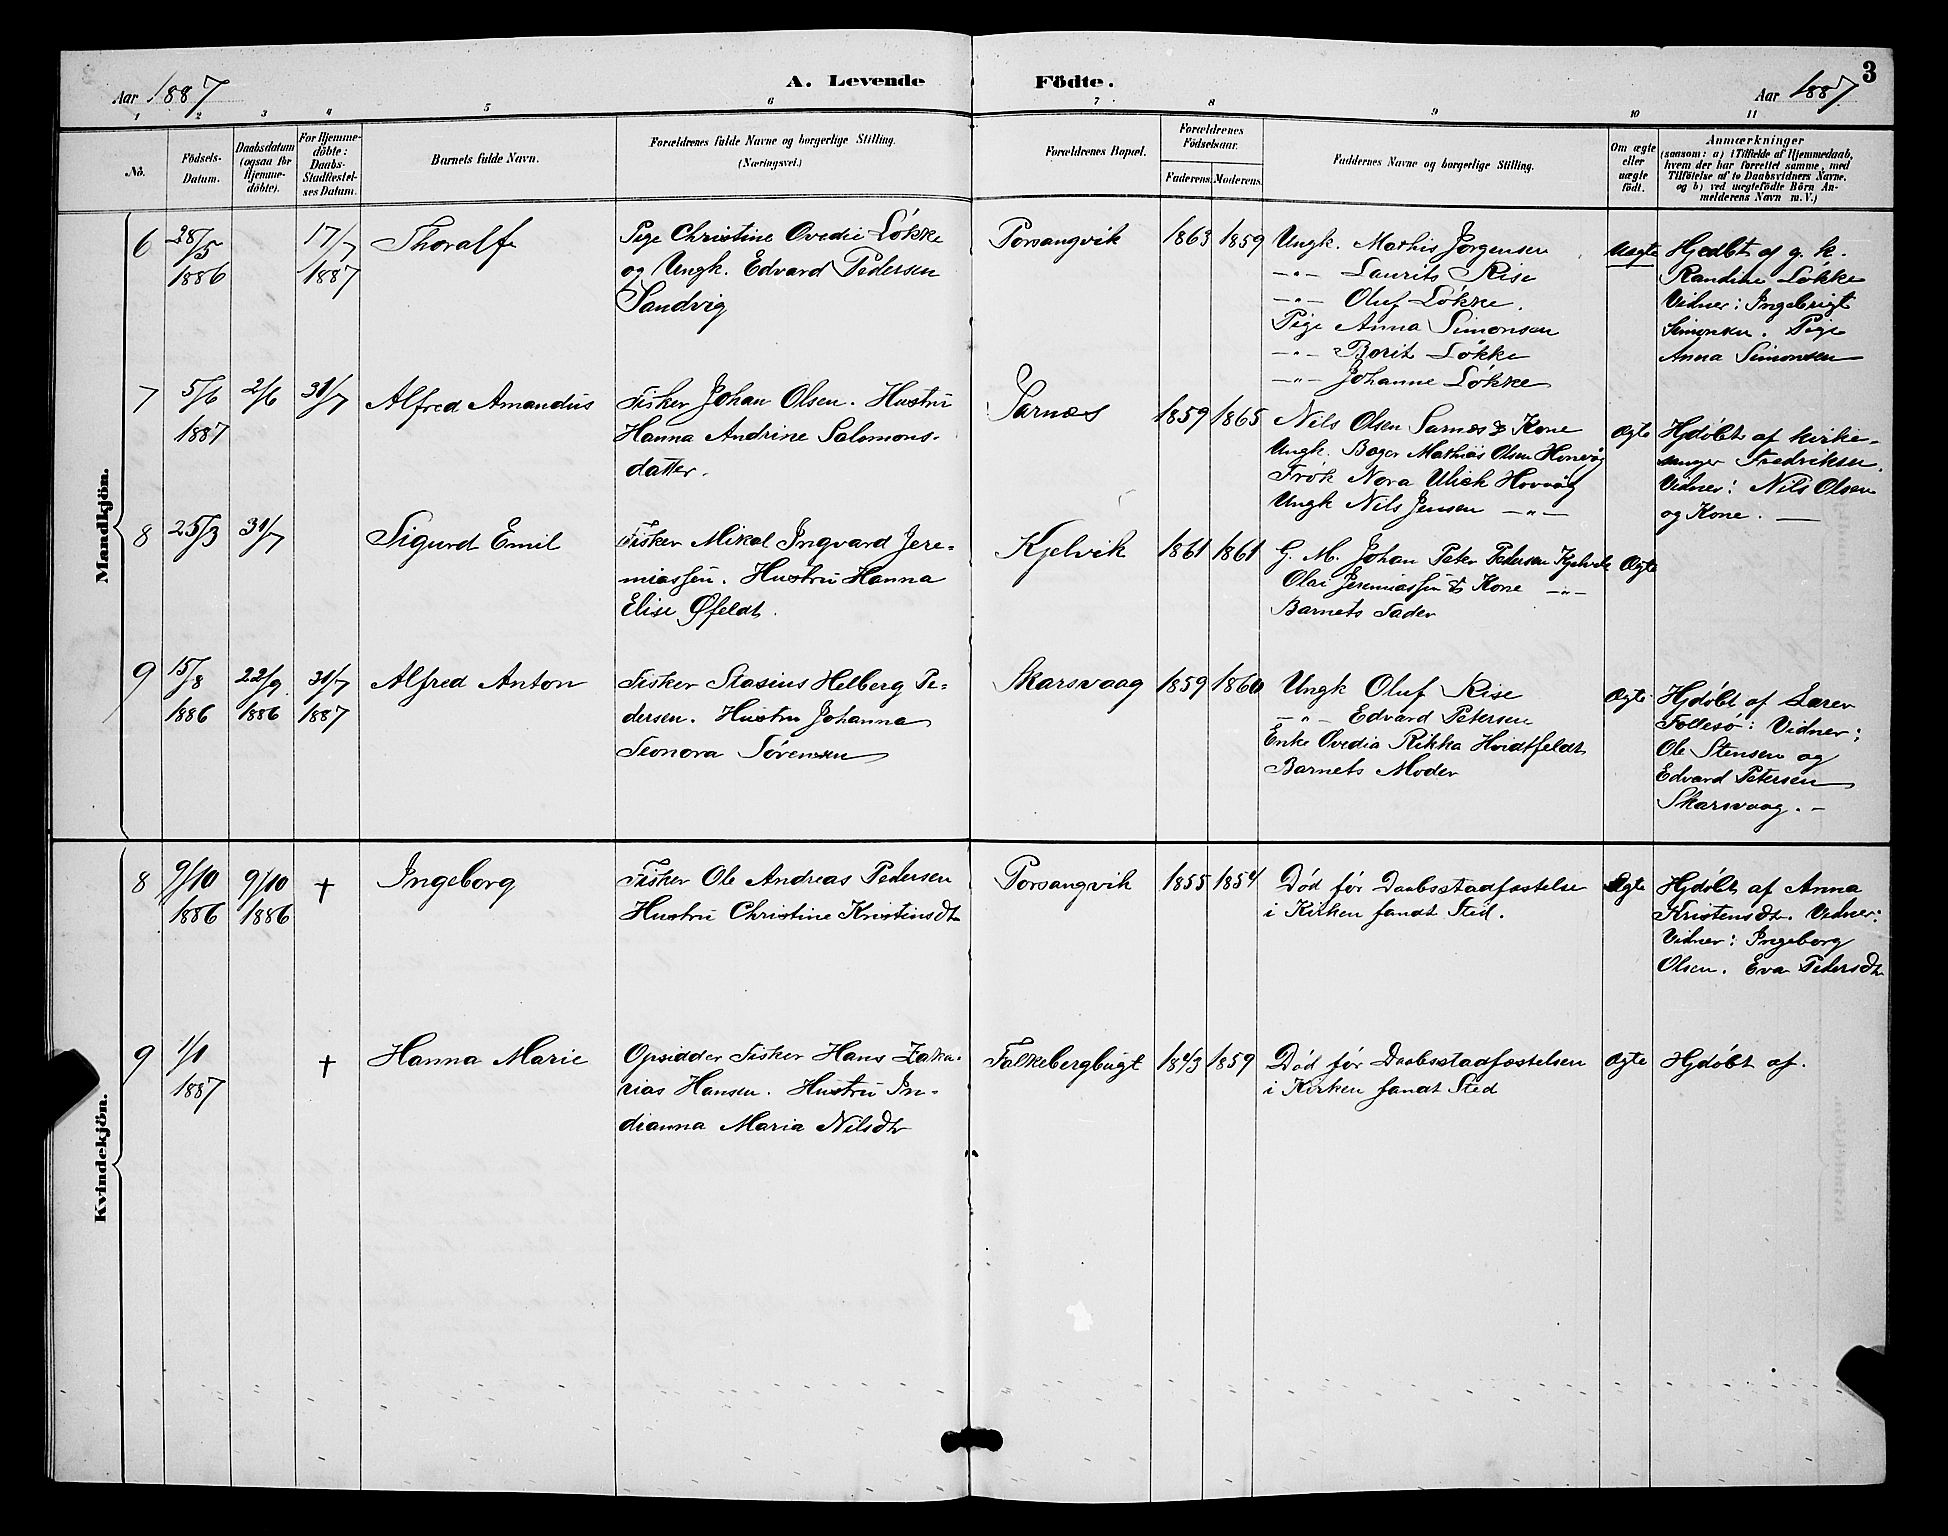 3
Aar 1887
A. Levende Födte.
Aar 1887
1 2 3 4 5 6 7 8 9 10 11
No.
Födsels-
Datum.
Daabsdatum
(ogsaa for
Hjemme-
döbte).
For Hjemme-
döbte:
Daabs-
Stadfæstel-
ses Datum.
Barnets fulde Navn.
Forældrenes fulde Navne og borgerlige Stilling.
(Næringsvei.)
Forældrenes Bopæl.
Forældrenes
Födselsaar.
Faderens. Moderens.
Faddernes Navne og borgerlige Stilling.
Om ægte
eller
uægte
født.
Anmærkninger
(saasom: a) i Tilfælde af Hjemmedaab,
hvem der har forrettet samme, med
Tilföielse af to Daabsvidners Navne.
og b) ved uægtefödte Börn An-
melderens Navn m. V.)
Mandkjön.
6
28/5
1886
17/7
1887
Thoralf
Pige Christine Ovedie Løkke
og Ungk. Edvard Pedersen
Sandvig
Porsangvik
1863
1859
Ungk. Mathis Jørgensen
-"- Laurits Rise
-"- Oluf Løkke.
Pige Anna Simonsen
-"- Borit Løkke
-"- Johanne Løkke
Uægte
Hjedøbt af g. k.
Randine Løkke
Vidner: Ingebrigt
Simonsen. Pige
Anna Simonsen
7
5/6
1887
2/6
31/7
Alfred Amandus
Fisker Johan Olsen. Hustru
Hanna Andrine Salomons-
datter.
Sarnæs
1859
1865
Nils Olsen Sarnæs & Kone
Ungk. Bager Mathias Olsen Honvåg
Frøk Nora Ulich Honvåg
Ungk Nils Jensen -"-
Ægte
Hjdøbt af Kirke-
sanger Fredriksen.
Vidner: Nils Olsen
og Kone. —
8
25/3
31/7
Sigurd Emil
Fisker Mikal Ingvard Jere-
miassen. Hustru Hanna
Elise Øfeldt.
Kjelvik
1861
1861
G. M. Johan Peter Pedersen Kjelvik
Olai Jeremiassen & Kone -"-
Barnets Fader
Ægte
9
15/8
1886
22/9
1886
31/7
1887
Alfred Anton
Fisker Stasius Helberg Pe-
dersen. Hustru Johanna
Leonora Sørensen
Skarsvaag
1859
1860
Ungk Oluf Rise
-"- Edvard Petersen
Enke Ovedia Rikka Hvidtfeldt
Barnets Moder
Ægte
Hjdøbt af Lærer
Follesø: Vidner:
Ole Stensen og
Edvard Petersen
Skarsvaag. -
Kvindekjön.
8
9/10
1886
9/10
1886
†
Ingeborg
Fisker Ole Andreas Pedersen
Hustru Christine Kristinsdtr
Porsangvik
1855
1854
Død før Daabsstadfæstelse
i Kirken fandt Sted.
Ægte
Hjdøbt af Anna
Kristensdtr. Vidner:
Vidner: Ingeborg
Olsen. Eva Pedersdtr
9
1/1
1887
†
Hanna Marie
Opsidder Fisker Hans Zaka-
rias Hansen. Hustru In-
dianna Maria Nilsdtr
Falkebergbugt
1843
1859
Død før Daabsstadfæstelsen
i Kirken fandt Sted
Ægte
Hjdøbt af.